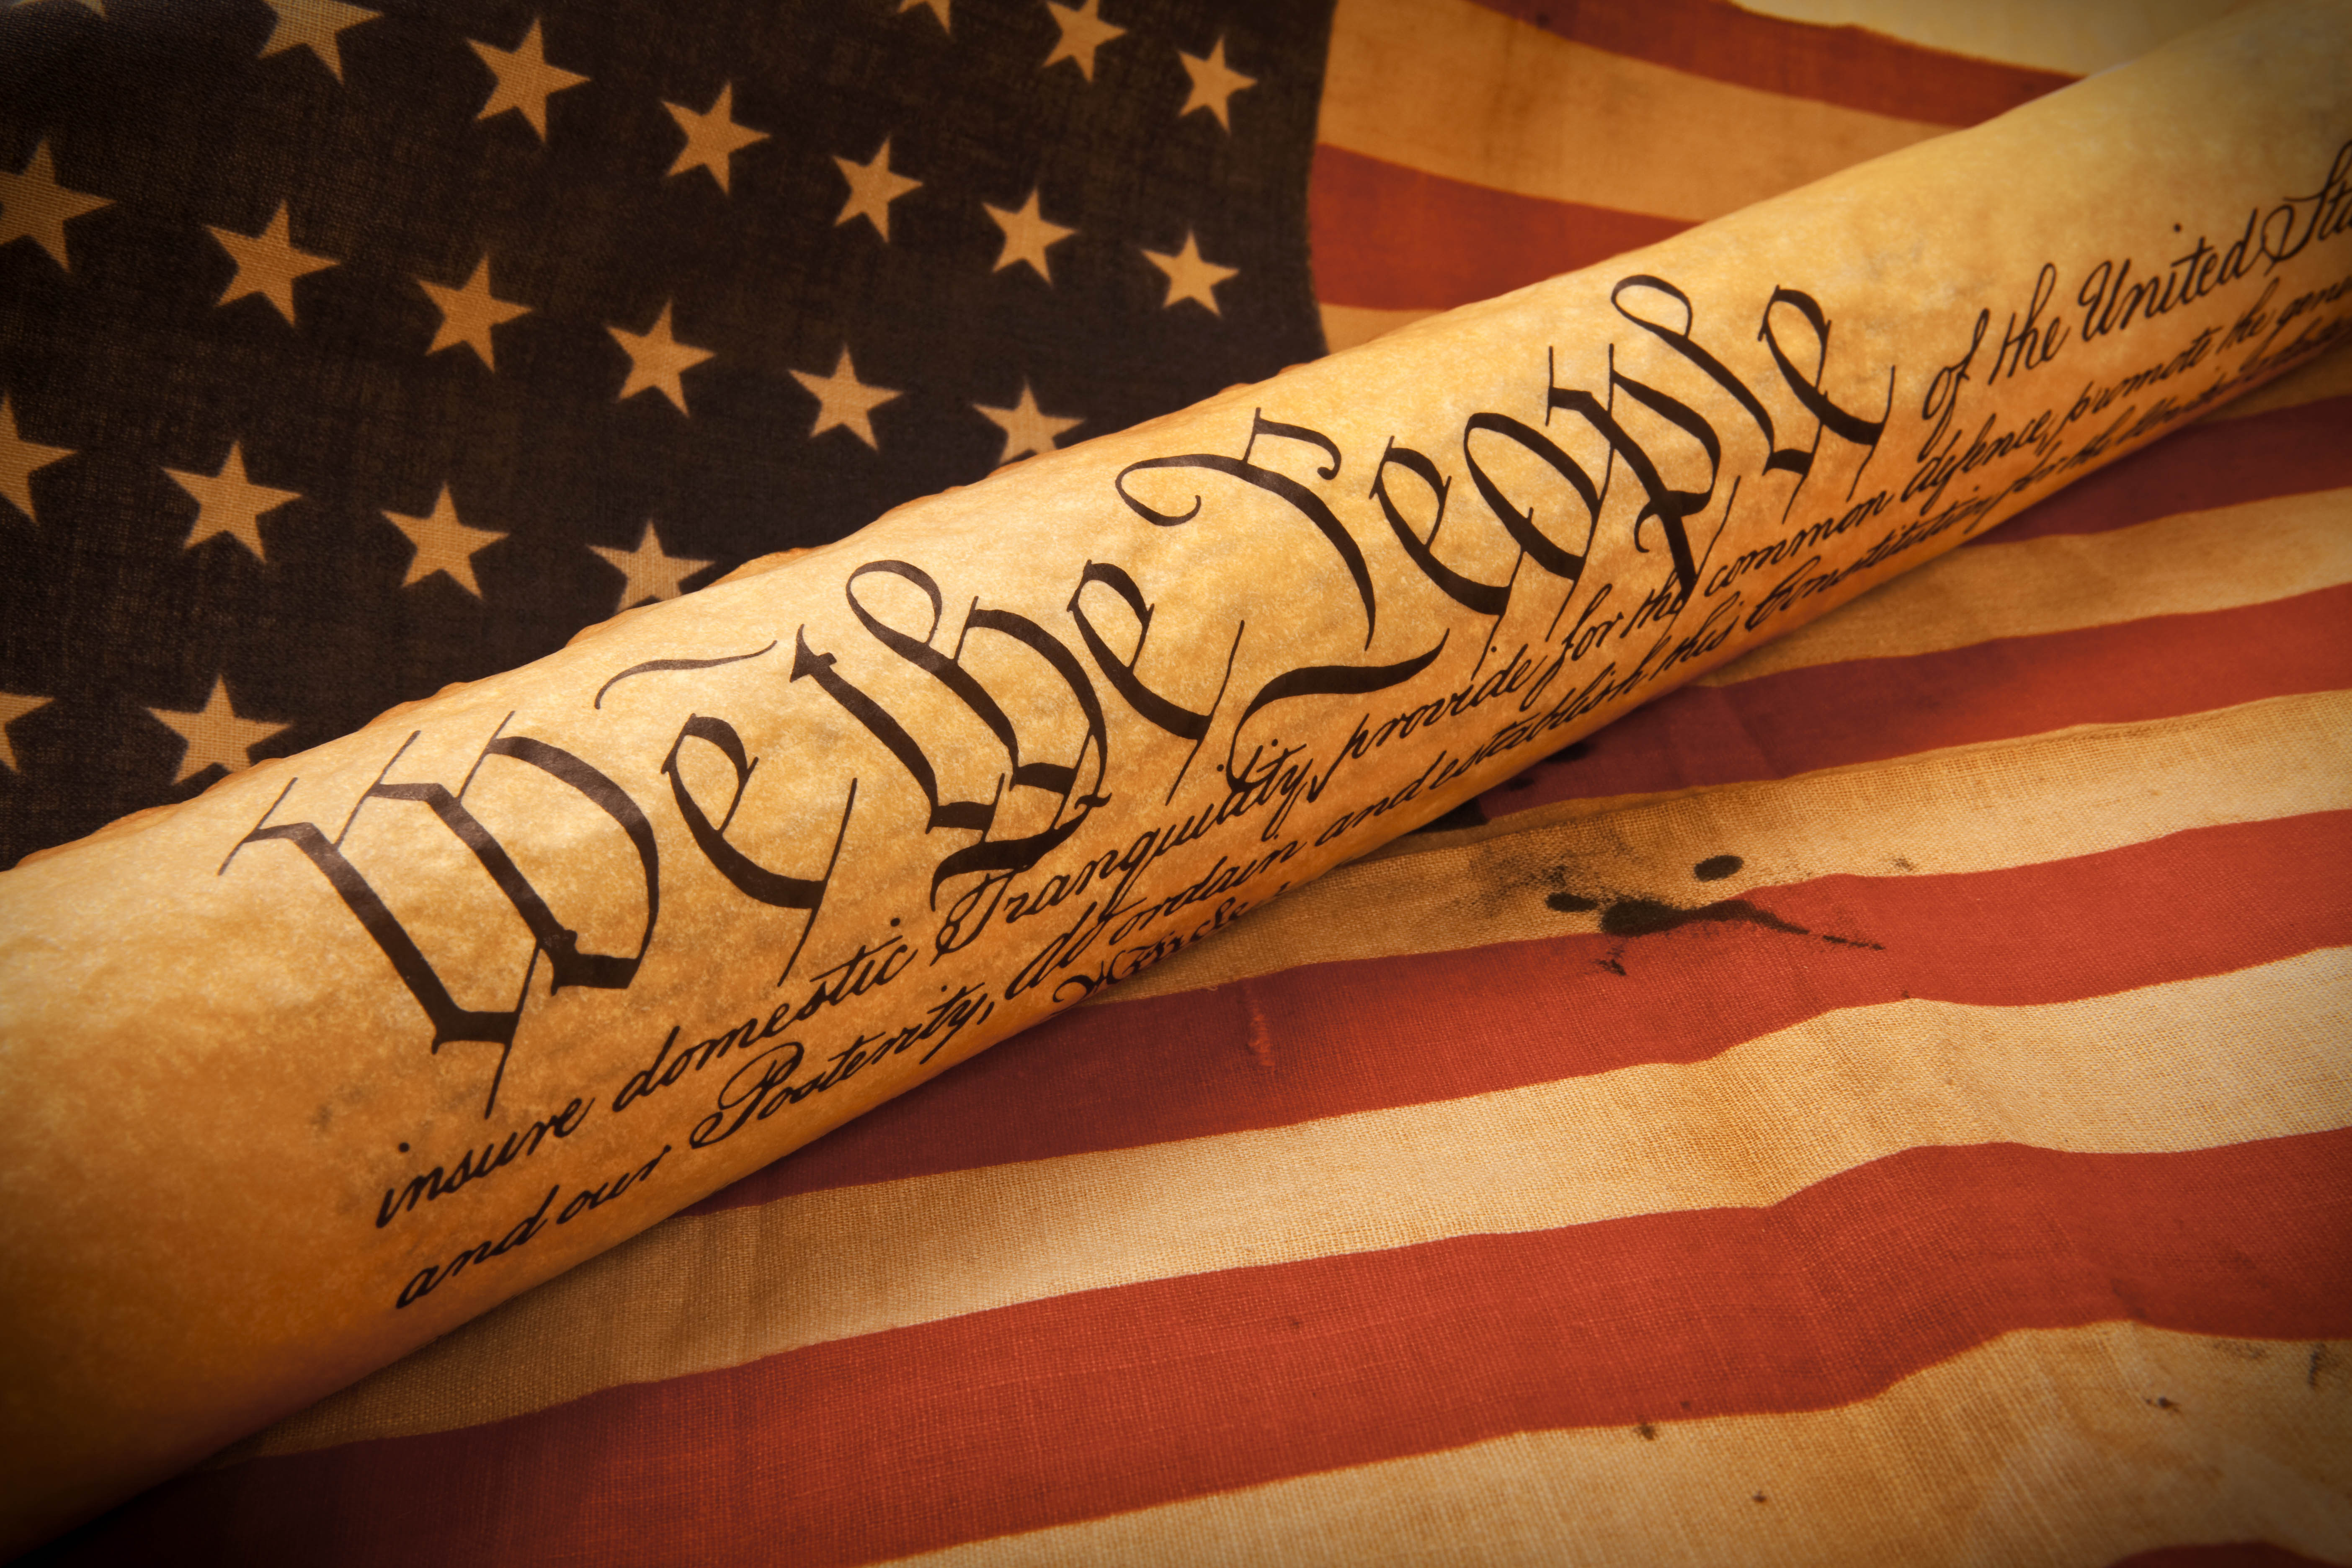 We the People of the United Sta
insure domestic Tranquility, provide for the common defence, promote the gene
and our Posterity, do ordain and establish this Constitution for the United